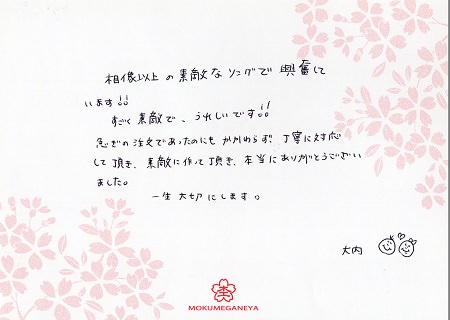 相像以上の素敵なリングで興奮して
います!!
すごく素敵で、うれしいです!!
急ぎの注文であったのにもかかわらず、丁寧に対応
して頂き、素敵に作って頂き、本当にありがとうござい
ました。
一生大切にします。
大内
MOKUMEGANEYA